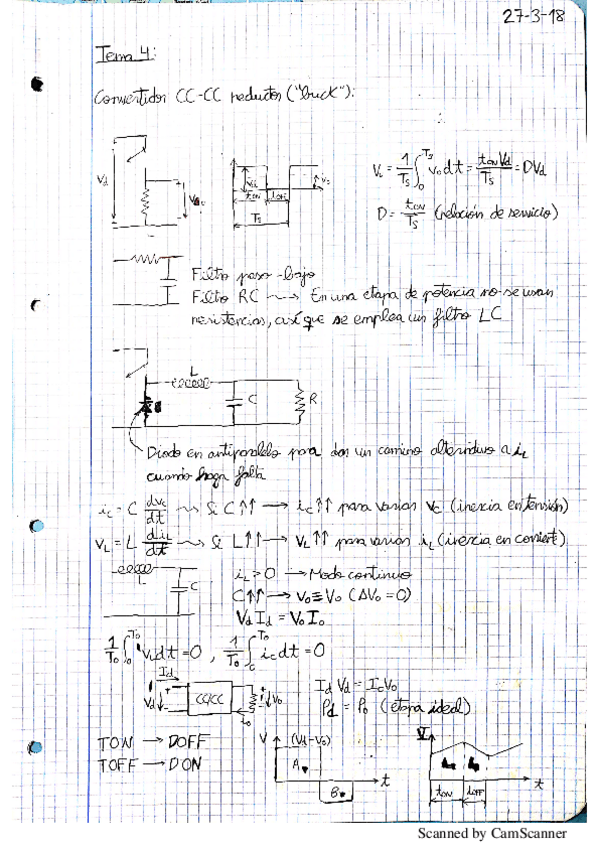 27-3-18
Tema 4:
Convertidor CC-CC reductor ("buck"):
Vd
ton toff
Ts
V₀ = 1/Ts ∫₀^Ts v₀ dt = ton Vd / Ts = DVd
D = ton/Ts (relación de servicio)
Filtro paso-bajo
Filtro RC ⇝ En una etapa de potencia no se usan
resistencias, así que se emplea un filtro LC
L
C R
Diodo en antiparalelo para dar un camino alternativo a iL
cuando haga falta
ic = C dvc/dt ⇝ Si C↑↑ → ic↑↑ para variar vc (inercia en tensión)
vL = L diL/dt ⇝ Si L↑↑ → vL↑↑ para variar iL (inercia en corriente)
L C
iL > 0 → Modo continuo
C↑↑ → v₀ ≡ V₀ (ΔV₀ = 0)
Vd Id = V₀ I₀
1/T₀ ∫₀^T₀ vL dt = 0 , 1/T₀ ∫₀^T₀ ic dt = 0
Id
Vd CC/CC V₀
I₀
Id Vd = I₀V₀
Pd = P₀ (etapa ideal)
TON → DOFF
TOFF → DON
V (Vd-V₀)
A
B
t
t
ton toff
Scanned by CamScanner